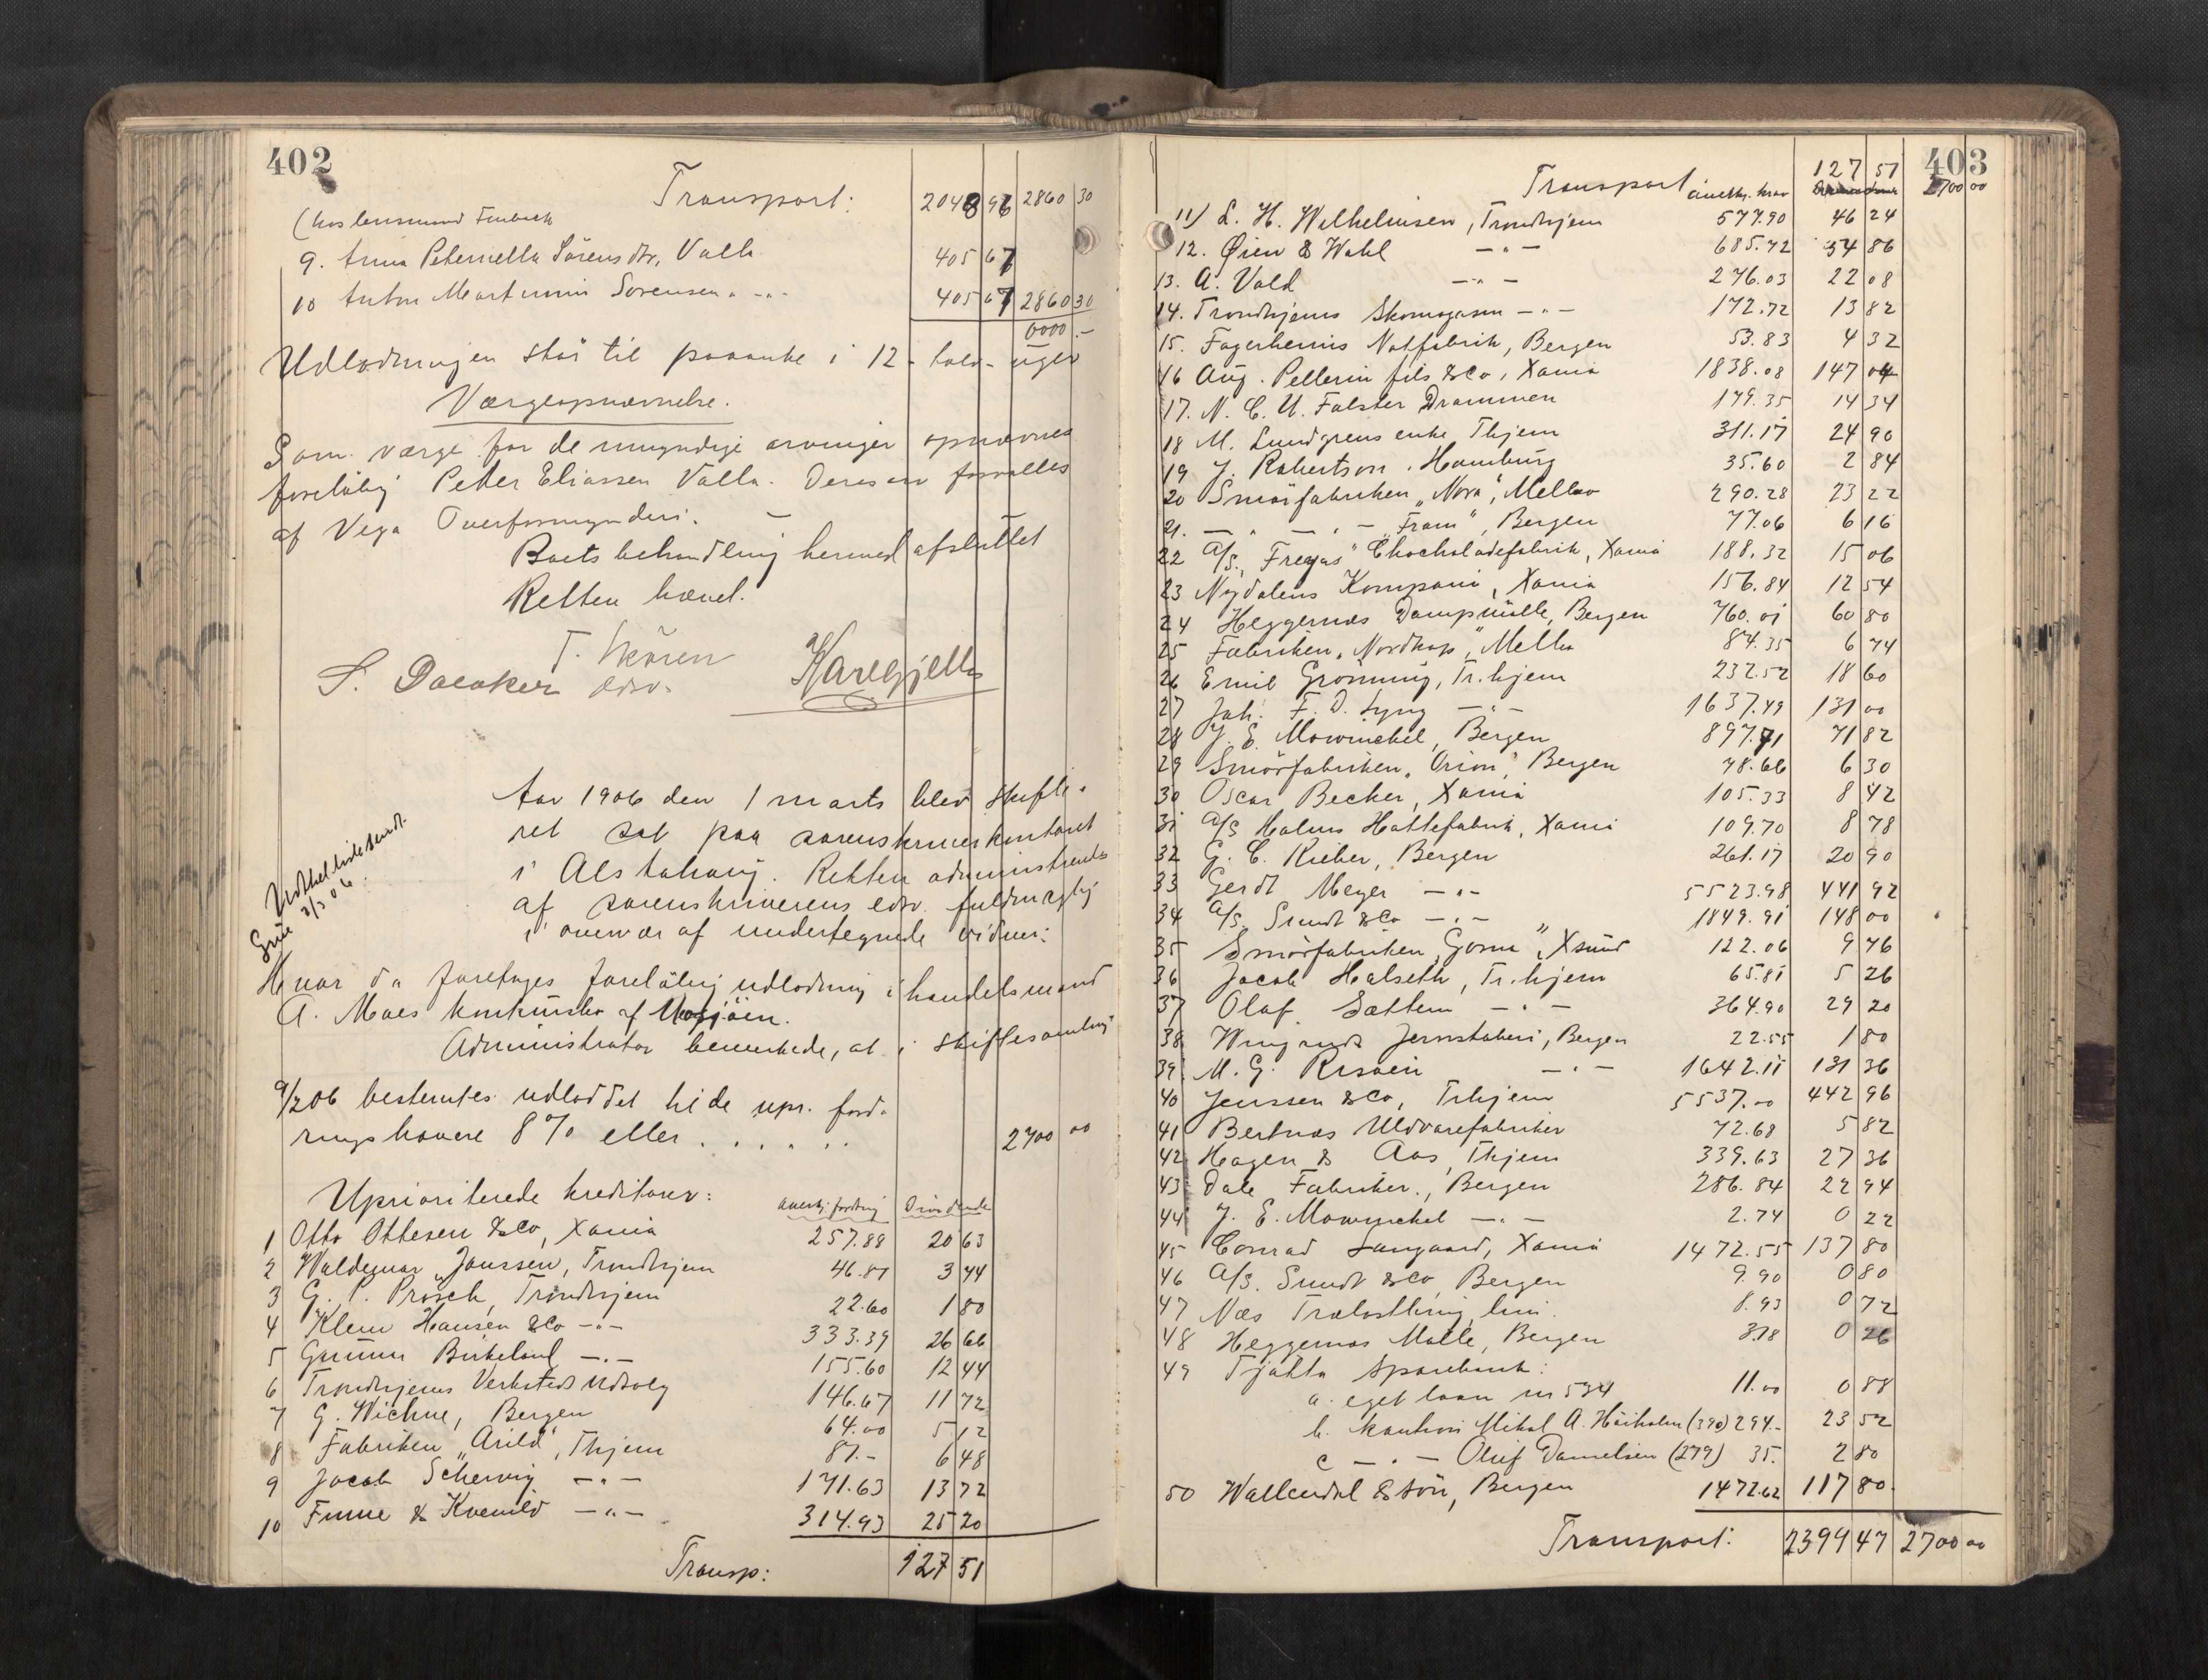 402
Transport: 2048 96 2860 30
(hos lensmand
9. Anna Peternella Sörensdtr, Valla 405 67
10 Anton Martinius Sörensen - " - 405 67 2860 30
0000.-
Udlodningen står til paaanke i 12 - tolv - uger
Værgeopnævnelse.
Som værge for de umyndige arvinger opnævnes
foreløbig Peter Eliassen Valla. Deres arv forvaltes
af Vega Overformynderi. -
Boets behandling hermed afsluttet
Retten hævet.
T. Skören
S. Daeaker edsv.
Aar 1906 den 1 marts blev skifte-
ret sat paa sorenskriverkontoret
i Alstahaug. Retten administreredes
af sorenskriverens edsv. fuldmægtig
i overvær af undertegnede vidner:
Hvor da foretages foreløbig udlodning i handelsmand
A. Moes konkursbo af Mosjøen.
Administrator bemerkede, at i skiftesamling
9/2 06 bestemtes udloddet til de upr. ford-
ringshavere 8 % eller . . . . . . 2700 00
Uprioriterede kreditorer: anerkj. fordring Dividende
1 Otto Ottesen & Co, Xania 257.88 20 63
2 Waldemar Janssen, Trondhjem 46.81 3 44
3 G. P. Prösch, Trondhjem 22.60 1 80
4 Klem Hansen & Co - " - 333.39 26 66
5 Gunnar Birkeland - " - 155.60 12 44
6 Trondhjems Verksteds Udsalg 146.67 11 72
7 G. Wichne, Bergen 64.00 5 12
8 Fabriken "Arild", Thjem 81.- 6 48
9 Jacob Schervig - " - 171.63 13 72
10 Finne & Kvenild - " - 314.93 25 20
Transp: 127 51
403
Transport 127 51 2700 00
anerkj. krav
11) L. H. Wilhelmsen, Trondhjem 577.90 46 24
12. Øien & Wahl - " - 685.72 54 86
13. A. Vold - " - 276.03 22 08
14. Trondhjems Skomagasin - " - 172.72 13 82
15. Fagerheims Notfabrik, Bergen 53.83 4 32
16 Aug. Pellerin fils & Co, Xania 1838.08 147 04
17. N. C. U. Falster Drammen 179.35 14 34
18 M. Lundgrens enke Thjem 311.17 24 90
19 J. Robertson. Hamburg 35.60 2 84
20 Smörfabriken "Nora", Melbo 290.28 23 22
21. - " - " - "Fram", Bergen 77.06 6 16
22 A/S. "Freyas" Chocholadefabrik, Xania 188.32 15 06
23 Nydalens Kompani, Xania 156.84 12 54
24 Heggernæs Dampmölle, Bergen 760.01 60 80
25 Fabriken "Nordkap", Melbo 84.35 6 74
26 Emil Grönning, Tr.hjem 232.52 18 60
27 Joh. F. D. Lyng - " - 1637.49 131 00
28 J. E. Mowinckel, Bergen 897.71 71 82
29 Smörfabriken "Orion", Bergen 78.66 6 30
30 Oscar Becker, Xania 105.33 8 42
31 A/S Holms Hattefabrik, Xania 109.70 8 78
32 G. C. Rieber, Bergen 261.17 20 90
33 Gerdt Meyer - " - 5523.98 441 92
34 A/S. Sundt & Co - " - 1849.91 148 00
35 Smörfabriken "Goma", Xsund 122.06 9 76
36 Jacob Halseth, Tr.hjem 65.81 5 26
37 Olaf Sættem - " - 364.90 29 20
38 Wingaards Jernstøberi, Bergen 22.55 1 80
39. M. G. Risøen - " - 1642.11 131 36
40 Jenssen & Co, Trhjem 5537.00 442 96
41 Bertnæs Uldvarefabriker 72.68 5 82
42 Hagen & Aas, Thjem 339.63 27 36
43 Dale Fabriker., Bergen 286.84 22 94
44 J. E. Mowinckel - " - 2.74 0 22
45 Conrad Langaard, Xania 1472.55 137 80
46 A/S. Sundt & Co, Bergen 9.90 0 80
47 Næs Træluftning 8.93 0 72
48 Heggernæs Mölle, Bergen 3.18 0 26
49 Tjøtta Sparebank:
a. eget laan nr 534 11.00 0 88
b. kaution Mikal A. Høiholm (390) 294.- 23 52
c - " - Oluf Danielsen (279) 35. 2 80
50 Wallendal & Sön, Bergen 1472.62 117 80.
Transport: 2399 47 2700 00